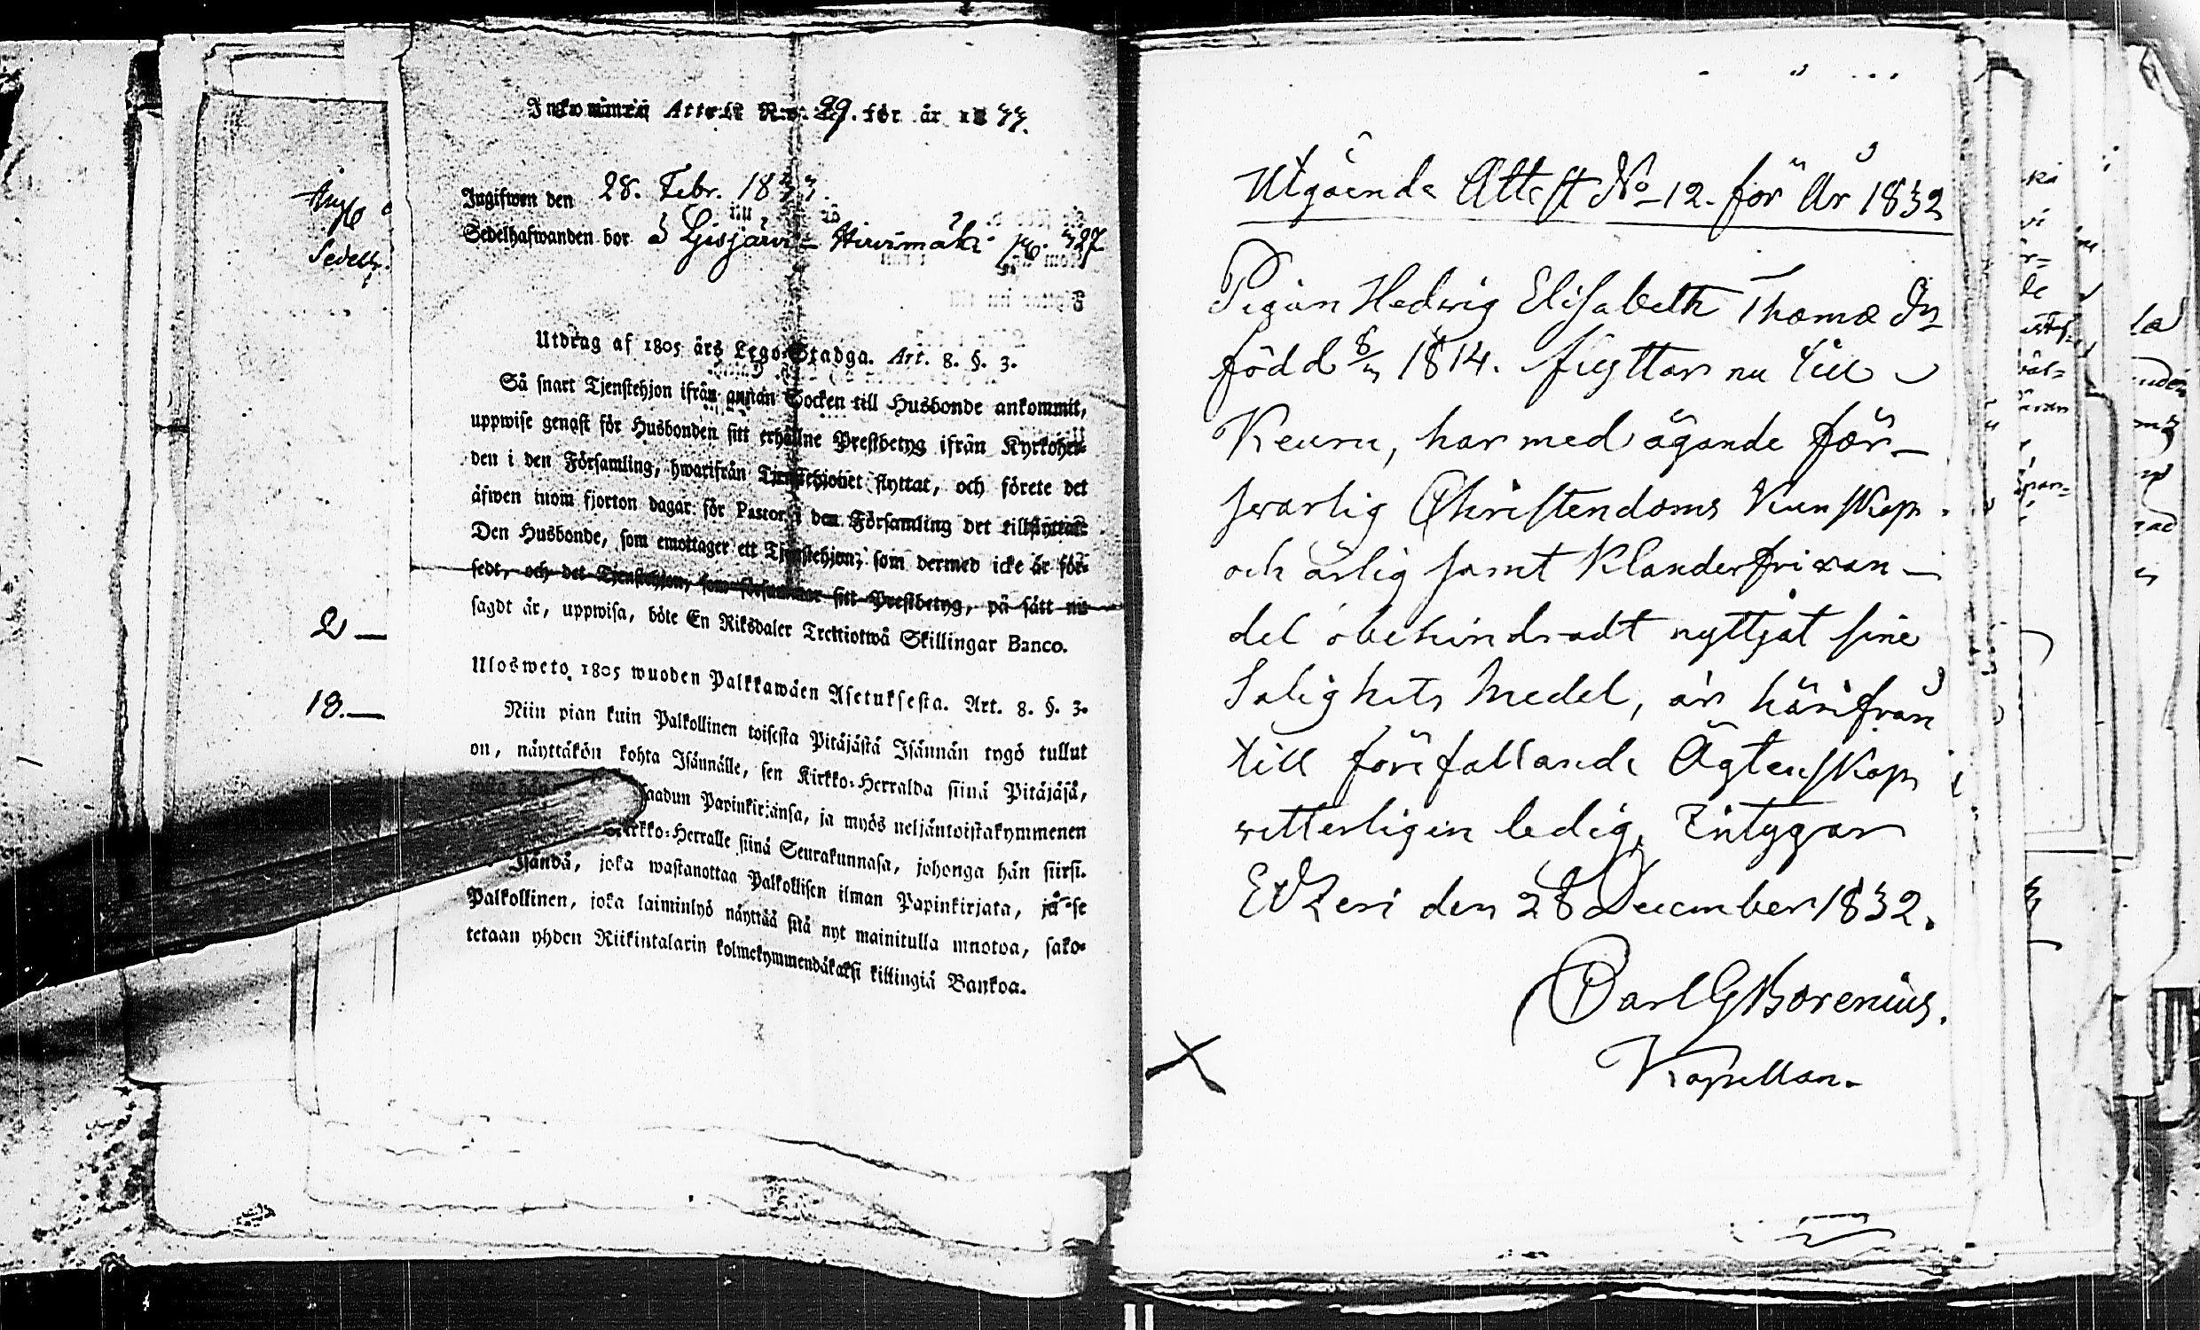 Inkommen Attest N:o 29. för år 1833.
Ingifwen den 28. Febr. 1833.
Sedelhafwanden bor å Ljisjärvi Hirvimäki p. 327
Utdrag af 1805 års Lego-Stadga. Art. 8. §. 3.
Så snart Tjenstehjon ifrån annan Socken till Husbonde ankommit,
uppwise genast för Husbonden sitt erhållne Prestbetyg ifrån Kyrkoher-
den i den Församling, hwarifrån Tjenstehjonet flyttat, och förete det
äfwen inom fjorton dagar för Pastor i den Församling det tillflyttat.
Den Husbonde, som emottager ett Tjenstehjon, som dermed icke är för-
sedt, och det Tjenstehjon, som försummar sitt Prestbetyg, på sätt nu
sagdt är, uppwisa, böte En Riksdaler Trettiotwå Skillingar Banco.
Ulosweto 1805 wuoden Palkkawäen Asetuksesta. Art. 8. §. 3.
Niin pian kuin Palkollinen toisesta Pitäjästä Isännän tygö tullut
on, näyttäkön kohta Isännälle, sen Kirkko-Herralda siinä Pitäjäsä,
saadun Papinkirjansa, ja myös neljäntoistakymmenen
Kirkko-Herralle siinä Seurakunnasa, johonga hän siirsi.
Isändä, joka wastanottaa Palkollisen ilman Papinkirjata, ja se
Palkollinen, joka laiminlyö näyttää sitä nyt mainitulla muotoa, sako-
tetaan yhden Riikintalarin kolmekymmendäkaksi killingiä Bankoa.
2 —
18. —
Utgående Attest No 12. för År 1832
Pigan Hedwig Elisabeth Thomæ Dr
född 8/ 1814. flyttar nu till
Keuru, har med ägande för-
swarlig Christendoms Kunskap
och ärlig samt Klanderfri wan-
del obehindradt nyttjat sine
Salighets Medel, är härifrån
till förefallande Ägtenskap
vitterligen ledig, Intygar
Etzeri den 28 December 1832.
Carl G Borenius.
Kapellan.